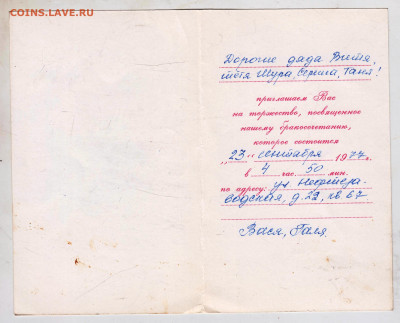 COINS.LAVE.RU
Дорогие дядя Витя,
тётя Шура, Серёжа, Таня!
приглашаем Вас
на торжество, посвященное
нашему бракосочетанию,
которое состоится
„23“ сентября 1977 г.
в 4 час. 50 мин.
по адресу: ул. Нефтеза-
водская, д. 22, кв 67.
Вася, Галя